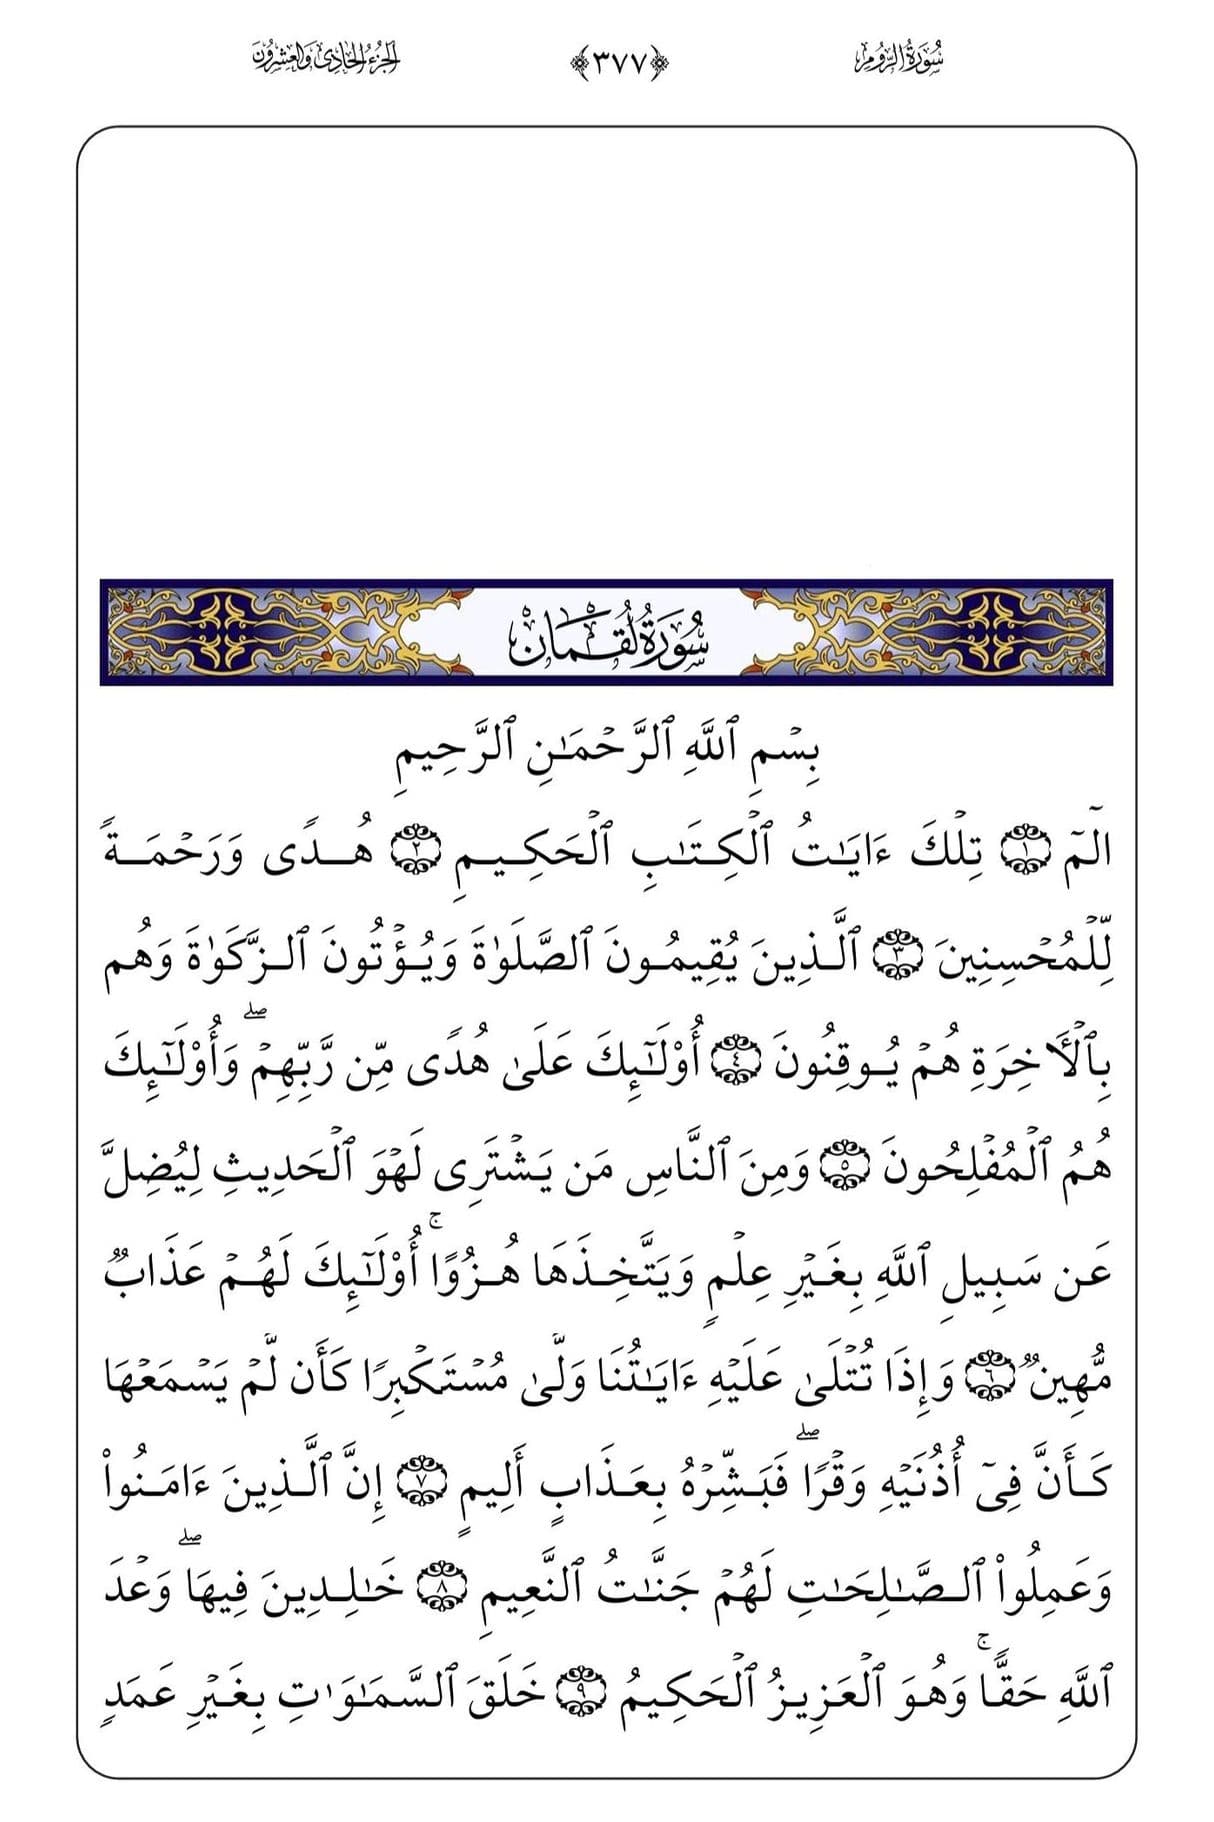 سُورَةُ الرُّومِ
﴿٣٧٧﴾
الجُزءُ الحَادِى وَالعِشرُونَ
سُورَةُ لُقۡمَان
بِسۡمِ ٱللَّهِ ٱلرَّحۡمَـٰنِ ٱلرَّحِيمِ
الٓمٓ ١ تِلۡكَ ءَايَـٰتُ ٱلۡكِتَـٰبِ ٱلۡحَكِيمِ ٢ هُدًى وَرَحۡمَةً
لِّلۡمُحۡسِنِينَ ٣ ٱلَّذِينَ يُقِيمُونَ ٱلصَّلَوٰةَ وَيُؤۡتُونَ ٱلزَّكَوٰةَ وَهُم
بِٱلۡأَخِرَةِ هُمۡ يُوقِنُونَ ٤ أُوْلَـٰٓئِكَ عَلَىٰ هُدًى مِّن رَّبِّهِمۡۖ وَأُوْلَـٰٓئِكَ
هُمُ ٱلۡمُفۡلِحُونَ ٥ وَمِنَ ٱلنَّاسِ مَن يَشۡتَرِى لَهۡوَ ٱلۡحَدِيثِ لِيُضِلَّ
عَن سَبِيلِ ٱللَّهِ بِغَيۡرِ عِلۡمٍ وَيَتَّخِذَهَا هُزُوًاۚ أُوْلَـٰٓئِكَ لَهُمۡ عَذَابٌ
مُّهِينٌ ٦ وَإِذَا تُتۡلَىٰ عَلَيۡهِ ءَايَـٰتُنَا وَلَّىٰ مُسۡتَكۡبِرًا كَأَن لَّمۡ يَسۡمَعۡهَا
كَأَنَّ فِىٓ أُذُنَيۡهِ وَقۡرًاۖ فَبَشِّرۡهُ بِعَذَابٍ أَلِيمٍ ٧ إِنَّ ٱلَّذِينَ ءَامَنُواْ
وَعَمِلُواْ ٱلصَّـٰلِحَـٰتِ لَهُمۡ جَنَّـٰتُ ٱلنَّعِيمِ ٨ خَـٰلِدِينَ فِيهَاۖ وَعۡدَ
ٱللَّهِ حَقًّاۚ وَهُوَ ٱلۡعَزِيزُ ٱلۡحَكِيمُ ٩ خَلَقَ ٱلسَّمَـٰوَٰتِ بِغَيۡرِ عَمَدٍ